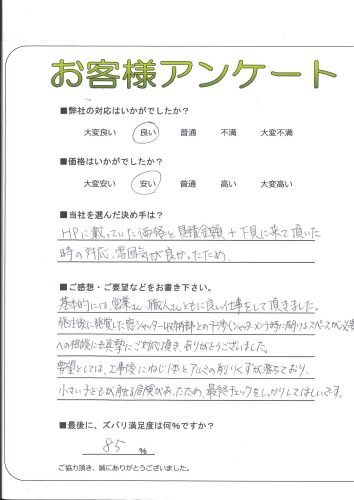 お客様アンケート
■弊社の対応はいかがでしたか?
大変良い 良い 普通 不満 大変不満
■価格はいかがでしたか?
大変安い 安い 普通 高い 大変高い
■当社を選んだ決め手は?
HPに載っていた価格と見積金額+下見に来て頂いた
時の対応、雰囲気が良かったため。
■ご感想・ご要望などをお書き下さい。
基本的には、営業さん、職人さんともに良い仕事をして頂きました。
発注後に発覚した窓シャッター収納部との干渉(シャッターメンテ時に開けるスペースが必要)
への相談にも真摯にご対応頂き、ありがとうございました。
要望としては、工事後にねじ1本とアルミの削りくずが落ちており、
小さい子どもが触る危険があったため、最終チェックをしっかりしてほしいです。
■最後に、ズバリ満足度は何%ですか?
85 %
ご協力頂き、誠にありがとうございました。